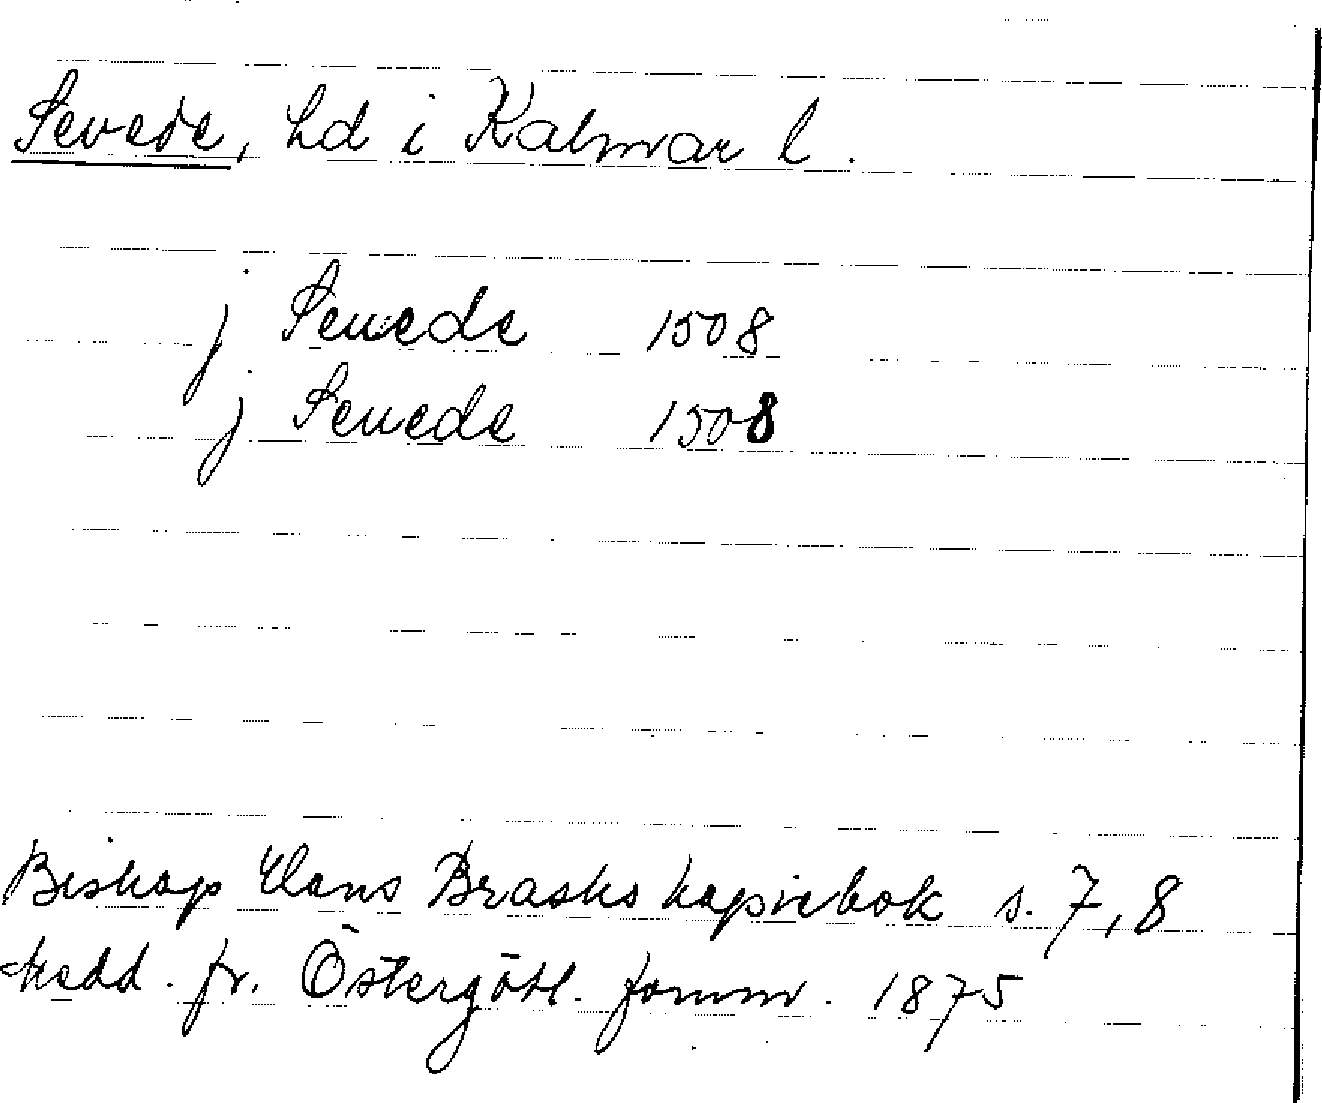 Sevede, hd i Kalmar l.
j Seuede 1508
j Seuede 1508
Biskop Hans Brasks kopiebok s. 7, 8
Medd. fr. Östergötl. fornm. 1875